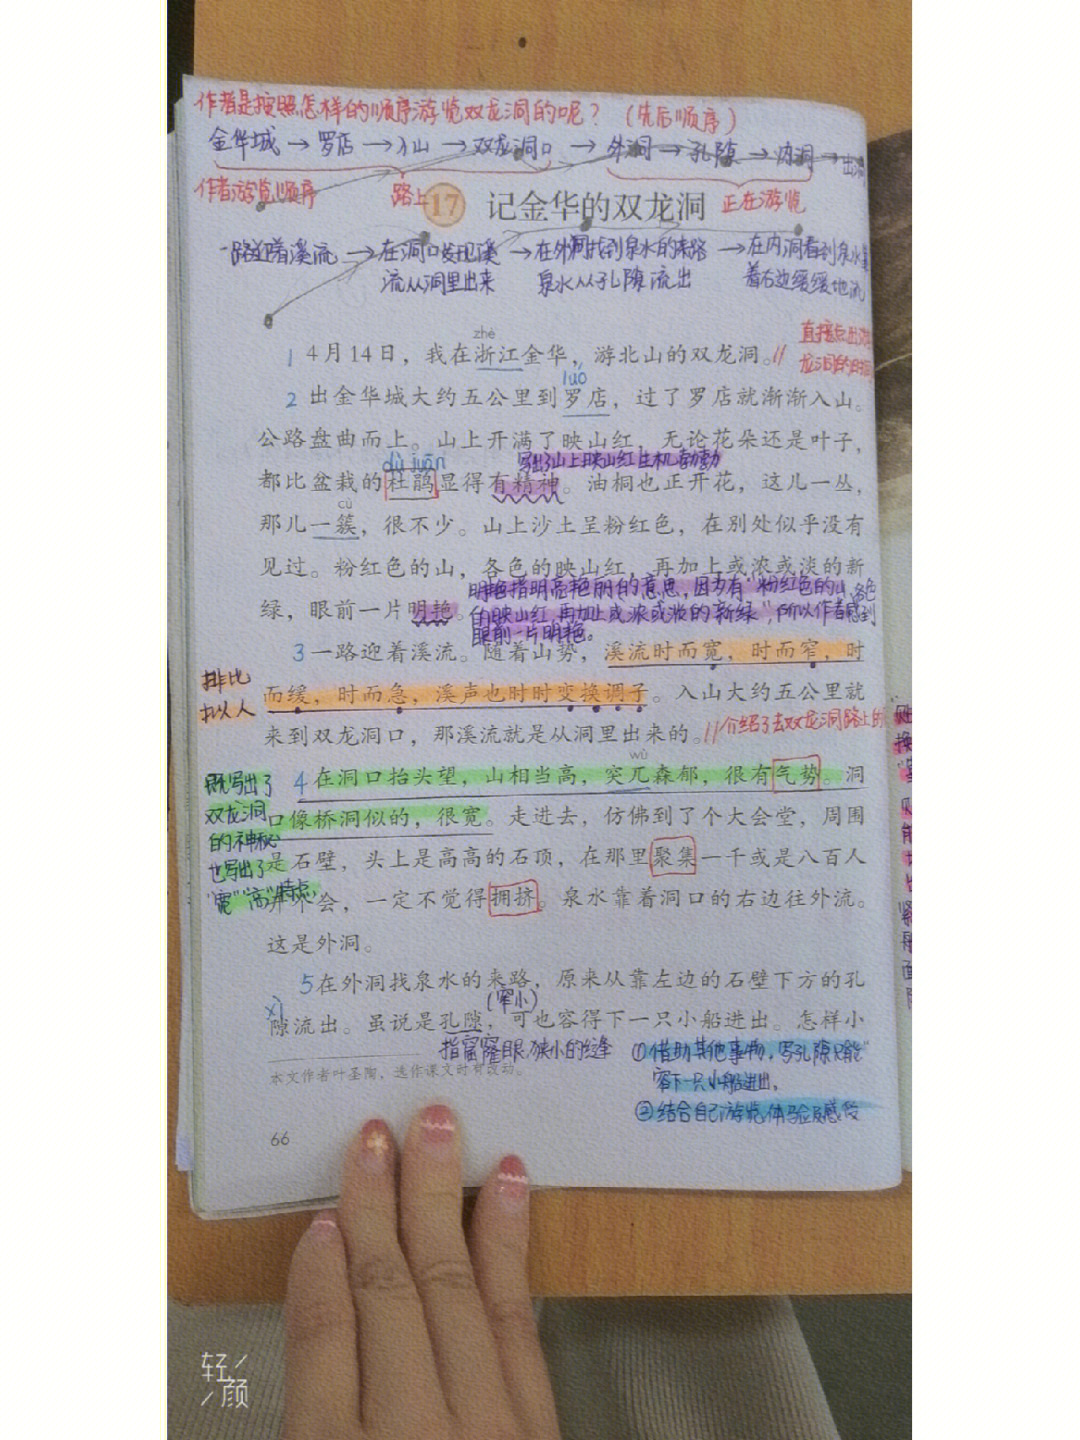 作者是按照怎样的顺序游览双龙洞的呢？（先后顺序）
金华城→罗店→入山→双龙洞口→外洞→孔隙→内洞→出洞
作者游览顺序
路上
正在游览
17 记金华的双龙洞
一路迎着溪流→在洞口发现溪→在外洞找到泉水的来路→在内洞看到泉水
流从洞里出来 泉水从孔隙流出 着右边缓缓地流
zhè
直接点出
1 4月14日，我在浙江金华，游北山的双龙洞。//
龙洞的时
luó
2 出金华城大约五公里到罗店，过了罗店就渐渐入山。
公路盘曲而上。山上开满了映山红，无论花朵还是叶子，
dù juān
写出了山上映山红生机勃勃
都比盆栽的杜鹃显得有精神。油桐也正开花，这儿一丛，
cù
那儿一簇，很不少。山上沙土呈粉红色，在别处似乎没有
见过。粉红色的山，各色的映山红，再加上或浓或淡的新
明艳指明亮艳丽的意思，因为有“粉红色的山，各色
绿，眼前一片明艳。
的映山红，再加上或浓或淡的新绿”，所以作者感到
眼前一片明艳。
3 一路迎着溪流。随着山势，溪流时而宽，时而窄，时
排比
而缓，时而急，溪声也时时变换调子。入山大约五公里就
拟人
来到双龙洞口，那溪流就是从洞里出来的。
//介绍了去双龙洞路上的
wù
4 在洞口抬头望，山相当高，突兀森郁，很有气势。洞
既写出了
双龙洞
口像桥洞似的，很宽。走进去，仿佛到了个大会堂，周围
的神秘
也写出了
是石壁，头上是高高的石顶，在那里聚集一千或是八百人
“宽”“高”特点，
开个会，一定不觉得拥挤。泉水靠着洞口的右边往外流。
这是外洞。
5 在外洞找泉水的来路，原来从靠左边的石壁下方的孔
xì
（窄小）
隙流出。虽说是孔隙，可也容得下一只小船进出。怎样小
指窟窿眼，狭小的缝
①借助其他事物，写孔隙只能
容下一只小船进出。
②结合自己游览体验及感受
本文作者叶圣陶，选作课文时有改动。
66
轻颜